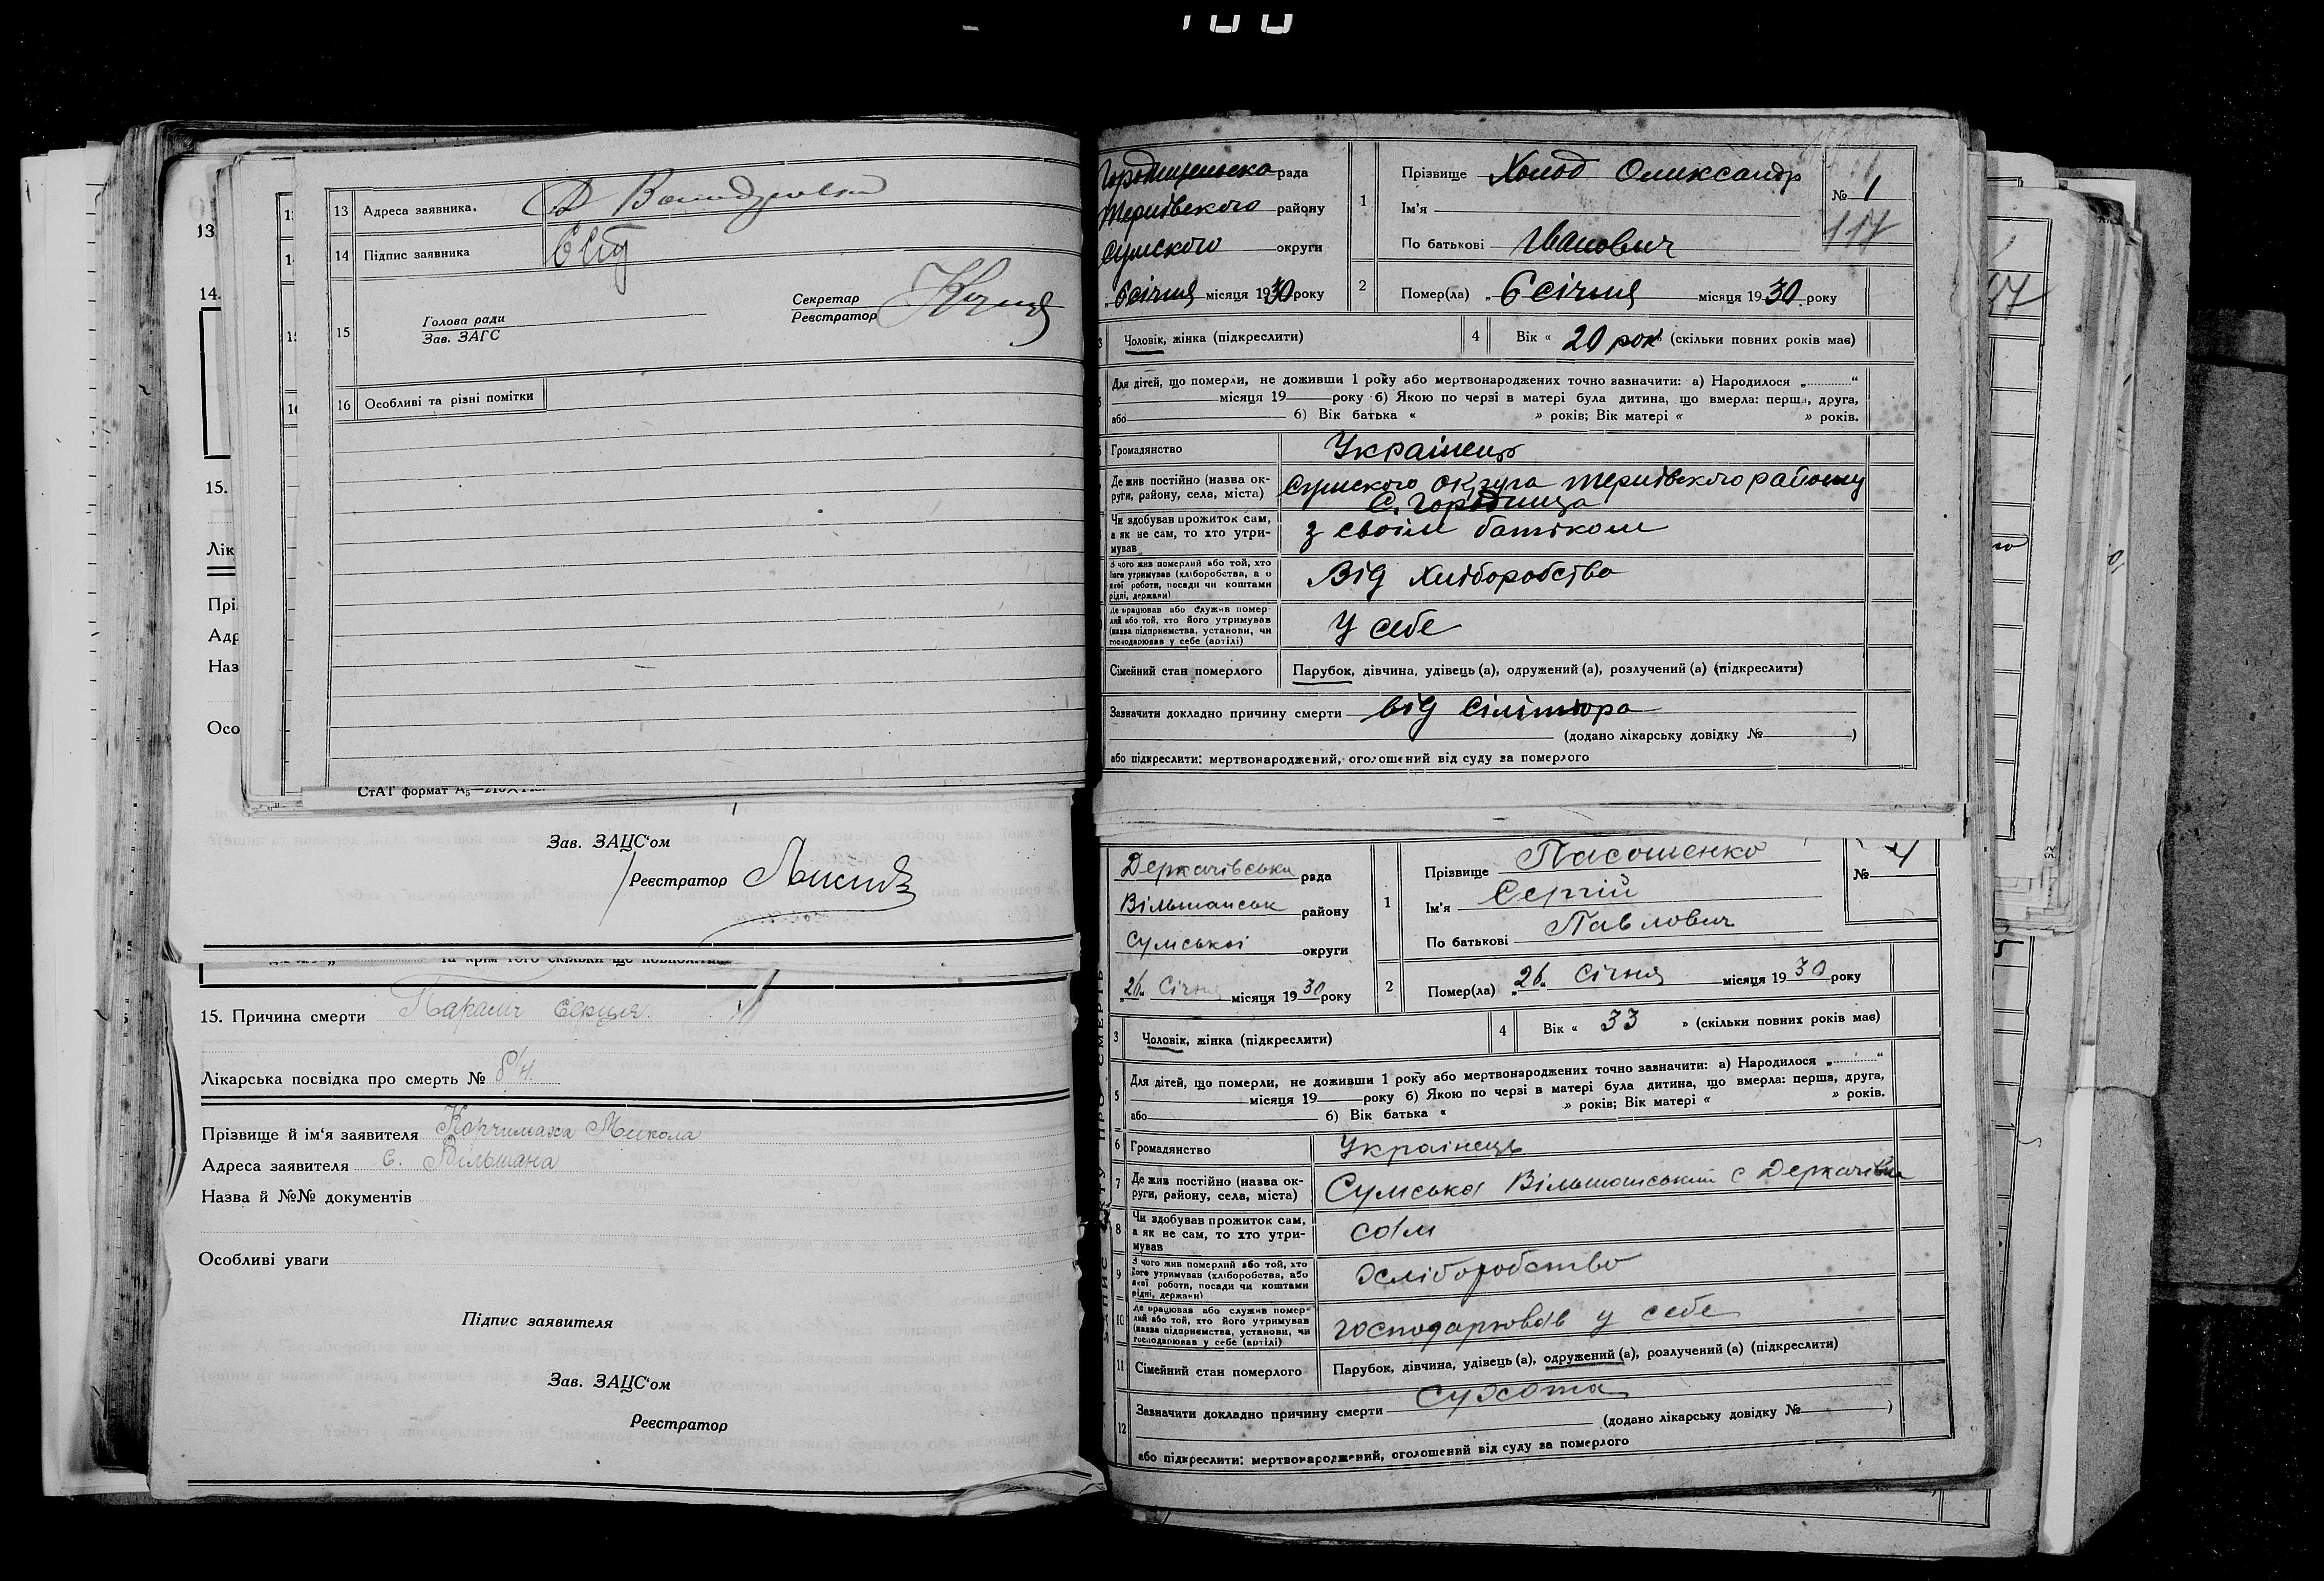 13 Адреса заявника.
14 Підпис заявника
15 Голова ради
Зав. ЗАГС
Секретар
Реєстратор
16 Особливі та різні помітки
13
14.
15.
Лік
Прі
Адр
Наз
Осо
Зав. ЗАЦС'ом
Реєстратор
15. Причина смерти Параліч Серця.
Лікарська посвідка про смерть № б/н.
Прізвище й ім'я заявителя Микола
Адреса заявителя с. Вільшана
Назва й №№ документів
Особливі уваги
Підпис заявителя
Зав. ЗАЦС'ом
Реєстратор
рада
Тернівского району
Сумского округи
„6 січня місяця 1930 року
1 Прізвище Холод Олександр
Ім'я
По батькові Іванович
№ 1
117
2 Помер(ла) „ 6 січня місяця 19 30 року
Чоловік, жінка (підкреслити)
4 Вік « 20 рок (скільки повних років має)
Для дітей, що померли, не доживши 1 року або мертвонароджених точно зазначити: а) Народилося „ “
місяця 19 року б) Якою по черзі в матері була дитина, що вмерла: перша, друга,
або б) Вік батька « » років; Вік матері « » років.
Громадянство Українець
Де жив постійно (назва ок-
руги, району, села, міста) Сумского округа Тернівского району
с. Городища
Чи здобував прожиток сам,
а як не сам, то хто утри-
мував з своїм батіком
З чого жив померлий або той, хто
його утримував (хліборобства, або
якої роботи, посади чи коштами
рідні, держави) Від Хліборобства
Де працював або служив помер-
лий або той, хто його утримував
(назва підприємства, установи, чи
господарював у себе (артілі) У себе
Сімейний стан померлого Парубок, дівчина, удівець (а), одружений (а), розлучений (а) (підкреслити)
Зазначити докладно причину смерти від
(додано лікарську довідку № )
або підкреслити: мертвонароджений, оголошений від суду за померлого
Деркачівська рада
Вільшанськ району
Сумської округи
„26“ Січня місяця 19 30 року
1 Прізвище Пасошенко
Ім'я Сергій
По батькові Павлович
№ 4
2 Помер(ла) „26“ Січня місяця 19 30 року
3 Чоловік, жінка (підкреслити)
4 Вік « 33 » (скільки повних років має)
5 Для дітей, що померли, не доживши 1 року або мертвонароджених точно зазначити: а) Народилося „ “
місяця 19 року б) Якою по черзі в матері була дитина, що вмерла: перша, друга,
або б) Вік батька « » років; Вік матері « » років.
6 Громадянство Українець
7 Де жив постійно (назва ок-
руги, району, села, міста) Сумська Вільшанський с Деркачівка
8 Чи здобував прожиток сам,
а як не сам, то хто утри-
мував сам
9 З чого жив померлий або той, хто
його утримував (хліборобства, або
якої роботи, посади чи коштами
рідні, держави) хліборобство
10 Де працював або служив помер-
лий або той, хто його утримував
(назва підприємства, установи, чи
господарював у себе (артілі) господарював у себе
11 Сімейний стан померлого Парубок, дівчина, удівець (а), одружений (а), розлучений (а) (підкреслити)
12 Зазначити докладно причину смерти Сухота
(додано лікарську довідку № )
або підкреслити: мертвонароджений, оголошений від суду за померлого